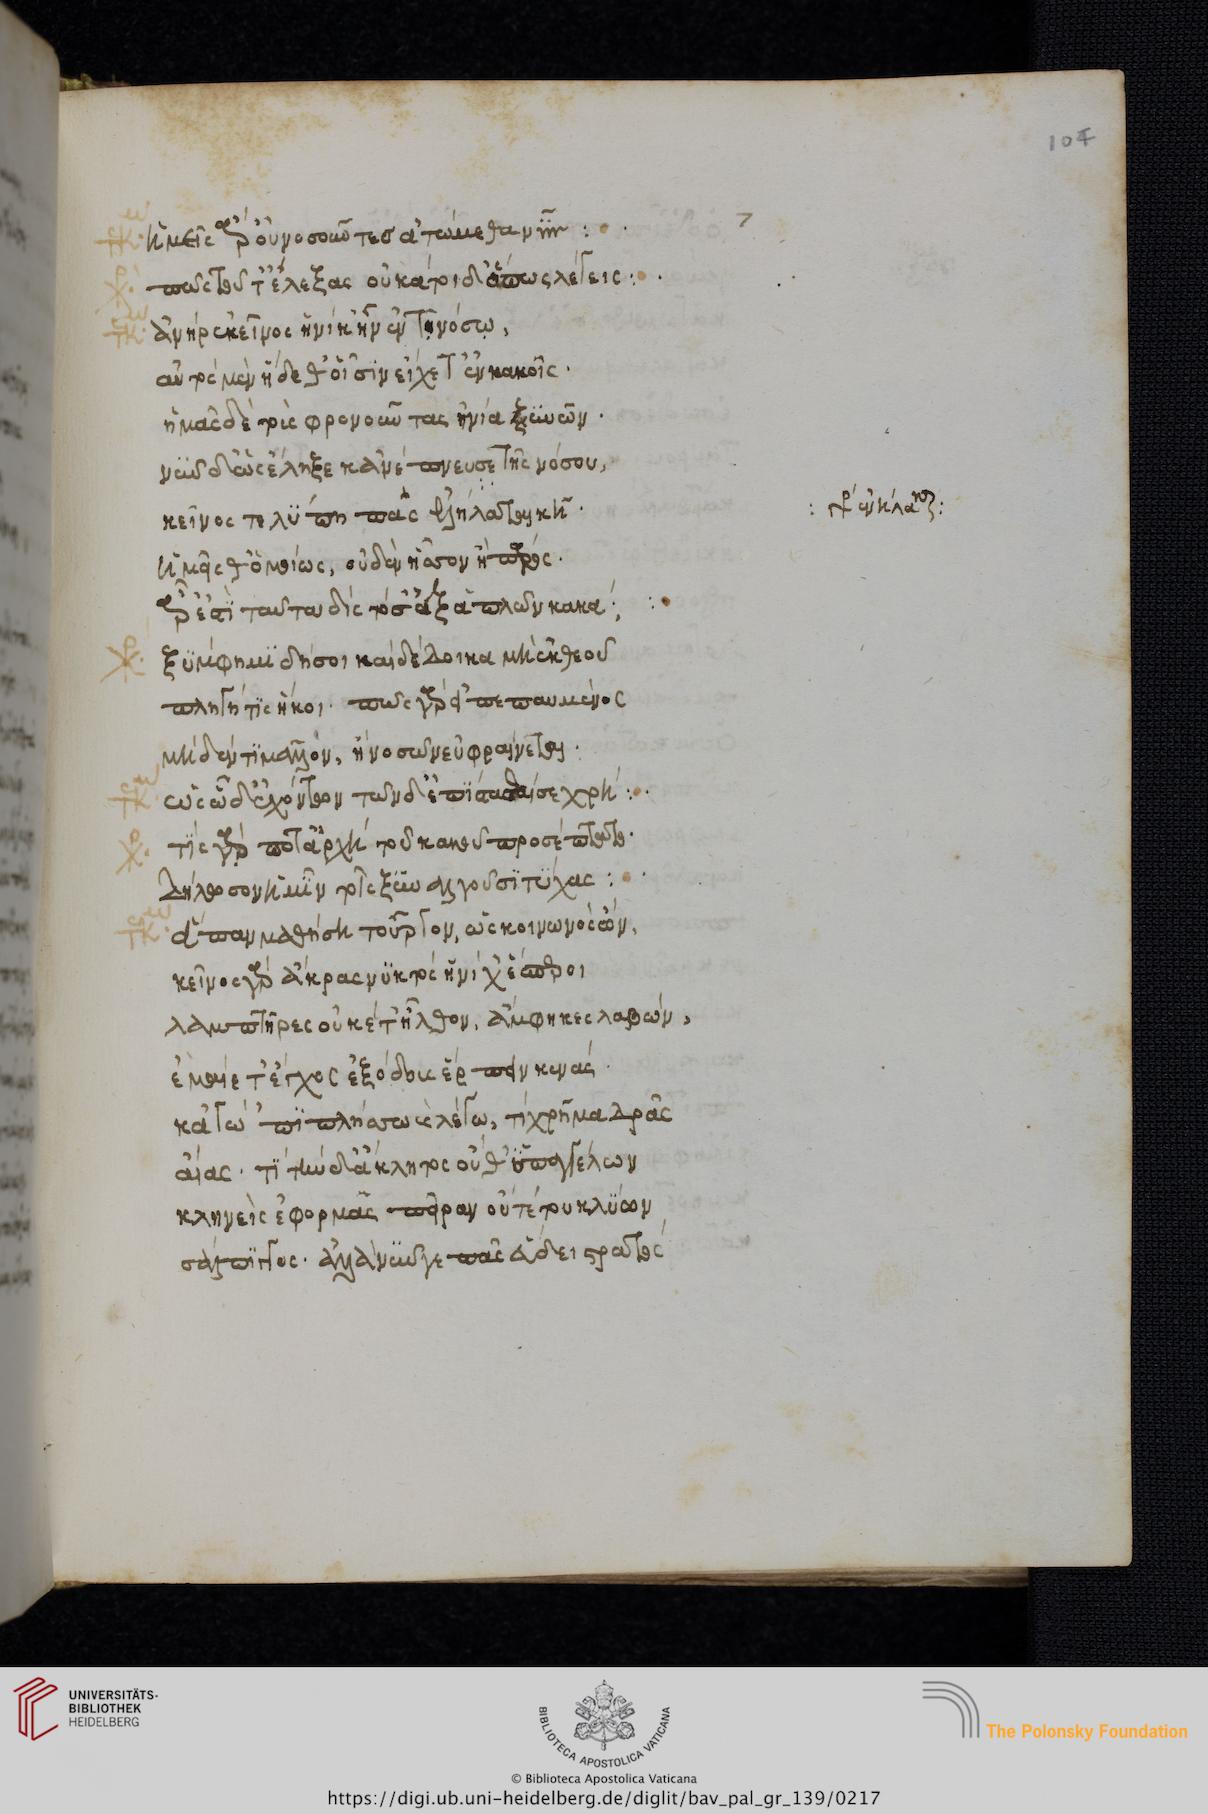 104
7
ἡμεῖς ἄρ' οὐ νοσοῦντες ἀτώμεθα νῦν :
πῶς τοῦτ' ἔλεξας οὐ κάτοιδ' ὅπως λέγεις :
ἁνὴρ ἐκεῖνος ἡνίκ' ἦν ἐν τῇ νόσῳ,
αὐτὸς μὲν ἥδεθ' οἷσιν εἴχετ' ἐν κακοῖς ·
ἡμᾶς δὲ τοὺς φρονοῦντας ἠνία ξυνών ·
νῦν δ' ὡς ἔληξε κἀνέπνευσε τῆς νόσου,
κεῖνος τε λύπῃ πᾶς ἐλήλαται κακῇ ·
ἡμεῖς θ' ὁμοίως, οὐδὲν ἧσσον ἢ πάρος ·
ἆρ' ἐστὶ ταῦτα δὶς τόσ' ἐξ ἁπλῶν κακά ;
ξύμφημι δή σοι καὶ δέδοικα μὴ ἐκ θεοῦ
πληγή τις ἥκοι · πῶς γὰρ εἰ πεπαυμένος
μηδέν τι μᾶλλον, ἢ νοσῶν εὐφραίνεται ·
ὡς ὧδ' ἐχόντων τῶνδ' ἐπίστασθαί σε χρή :
τίς γάρ ποτ' ἀρχὴ τοῦ κακοῦ προσέπτατο ·
δήλωσον ἡμῖν τοῖς ξυναλγοῦσι τύχας :
ἅπαν μαθήσῃ τοὖργον, ὡς κοινωνὸς ὤν,
κεῖνος γὰρ ἄκρας νυκτὸς ἡνίχ' ἕσπεροι
λαμπτῆρες οὐκέτ' ἦθον, ἄμφηκες λαβών,
ἐμαίετ' ἔγχος ἐξόδους ἕρπειν κενάς ·
κἀγὼ 'πιπλήσσω καὶ λέγω, τί χρῆμα δρᾷς
αἴας · τί τήνδ' ἄκλητος οὔθ' ὑπ' ἀγγέλων
κληθεὶς ἐφορμᾷς πεῖραν οὔτέ του κλύων
σάλπιγγος · ἀλλὰ νῦν γε πᾶς εὕδει στρατός
UNIVERSITÄTS-
BIBLIOTHEK
HEIDELBERG
BIBLIOTECA APOSTOLICA VATICANA
The Polonsky Foundation
© Biblioteca Apostolica Vaticana
https://digi.ub.uni-heidelberg.de/diglit/bav_pal_gr_139/0217